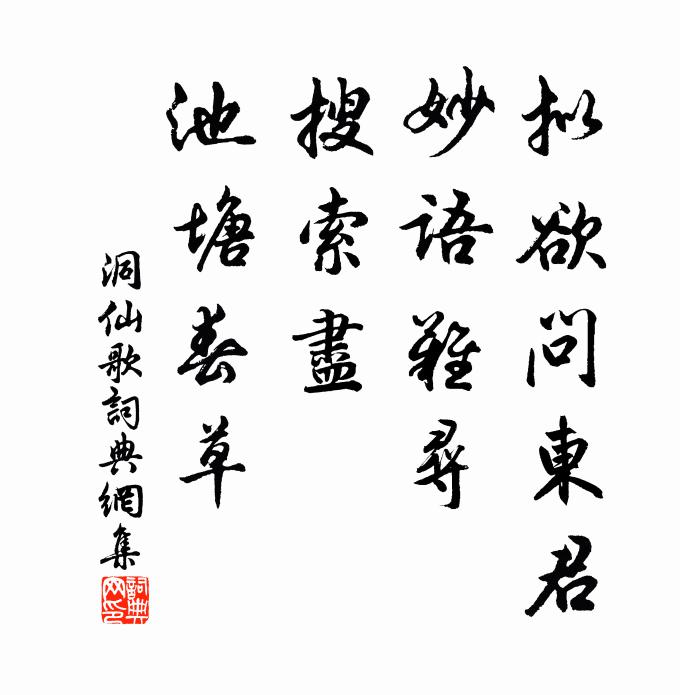 拟欲问東君
妙語難尋
搜索盡
池塘春草
洞仙歌詞典網集
詞典网印